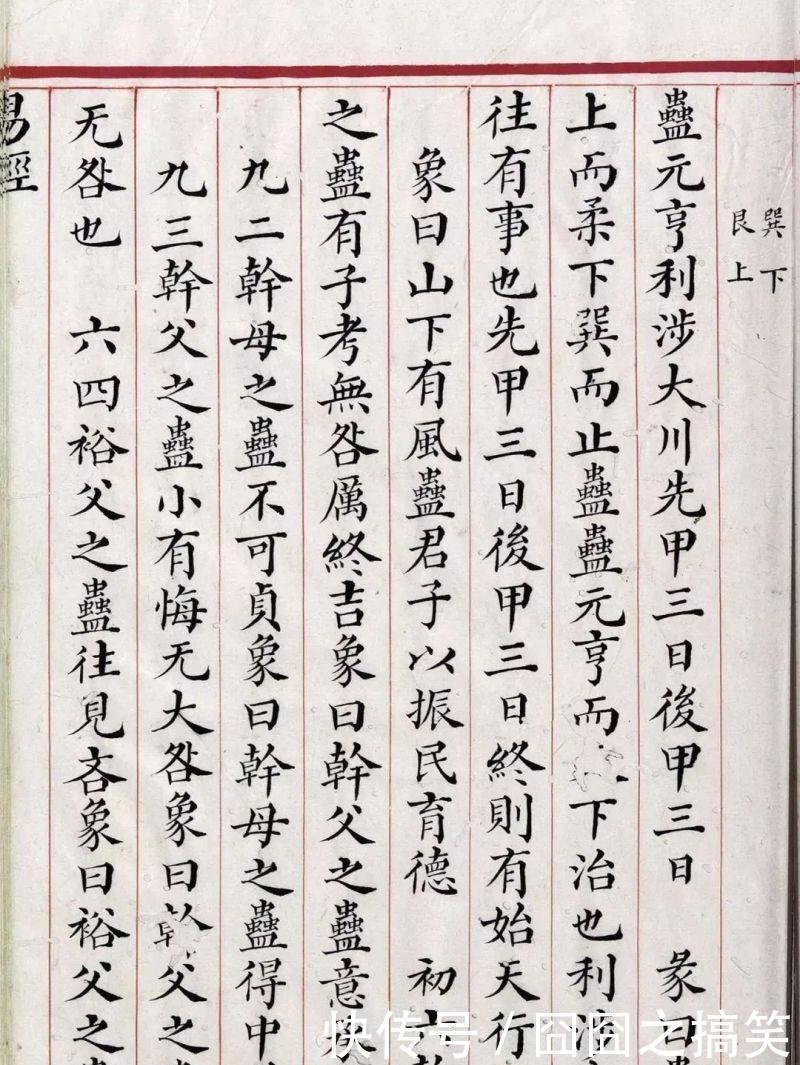 巽下
艮上
蠱元亨利涉大川先甲三日後甲三日　彖曰蠱
上而柔下巽而止蠱蠱元亨而下治也利涉
往有事也先甲三日後甲三日終則有始天行
象曰山下有風蠱君子以振民育德　初六幹
之蠱有子考無咎厲終吉象曰幹父之蠱意承
九二幹母之蠱不可貞象曰幹母之蠱得中
九三幹父之蠱小有悔无大咎象曰幹父之蠱
无咎也　六四裕父之蠱往見吝象曰裕父之蠱
易經
快传号 / 囧囧之搞笑